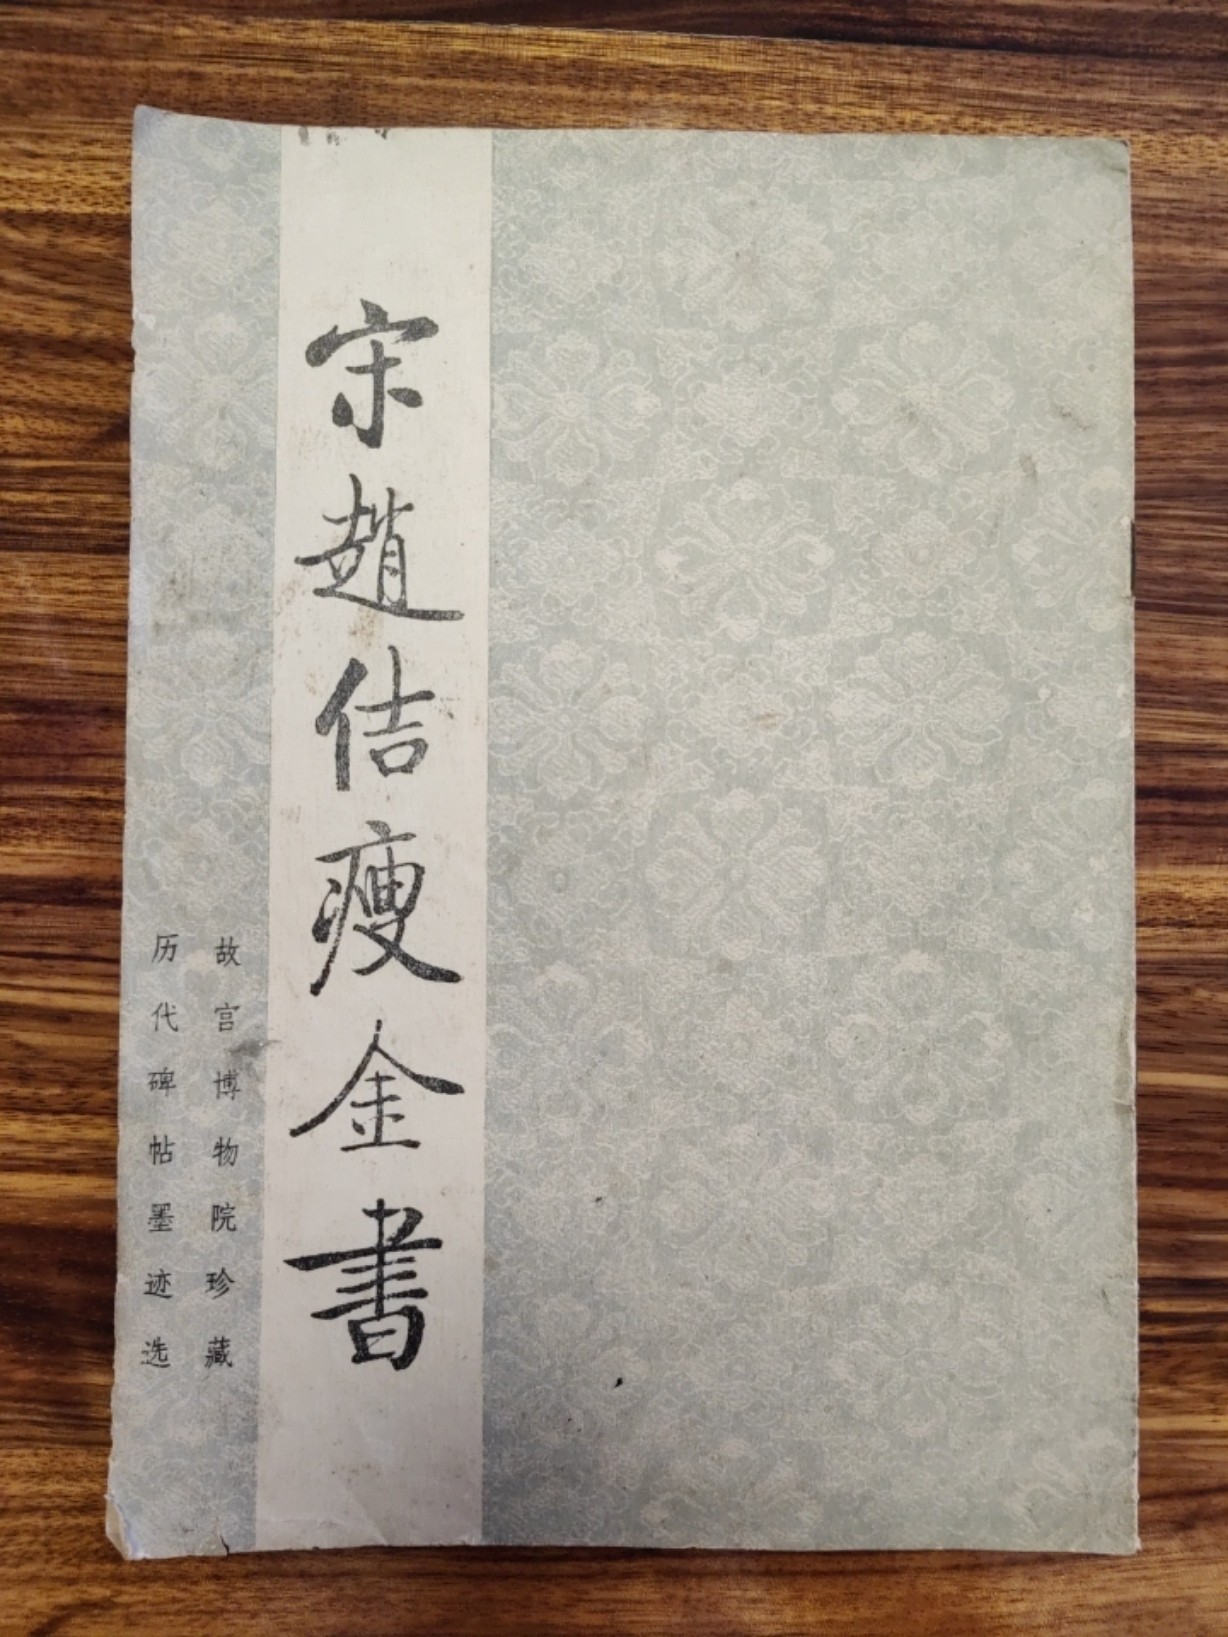 宋趙佶瘦金書
故宫博物院珍藏
历代碑帖墨迹选